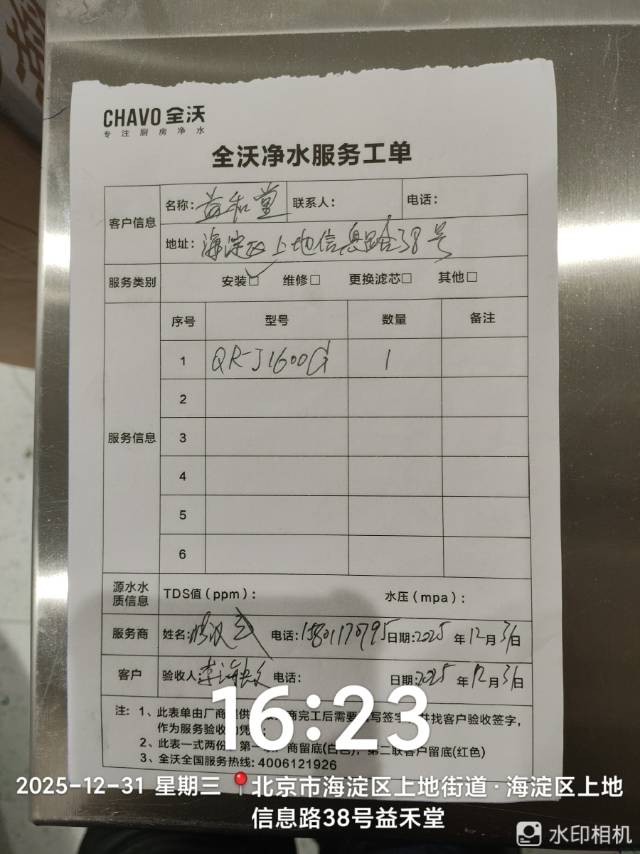 CHAVO 全沃
专注厨房净水
全沃净水服务工单
客户信息 名称: 益和堂 联系人: 电话:
地址: 海淀区上地信息路38号
服务类别 安装☑ 维修□ 更换滤芯□ 其他□
服务信息 序号 型号 数量 备注
1 QR-J1600G 1
2
3
4
5
6
源水水质信息 TDS值(ppm): 水压(mpa):
服务商 姓名: 电话: 日期:2025年12月31日
客户 验收人: 电话: 日期:2025年12月31日
注: 1、此表单由厂商提供 商完工后需要 写签 并找客户验收签字,
作为服务验收
2、此表一式两份 第一 商留底(白色), 第二联客户留底(红色)
3、全沃全国服务热线: 4006121926
16:23
2025-12-31 星期三 北京市海淀区上地街道·海淀区上地
信息路38号益禾堂
水印相机